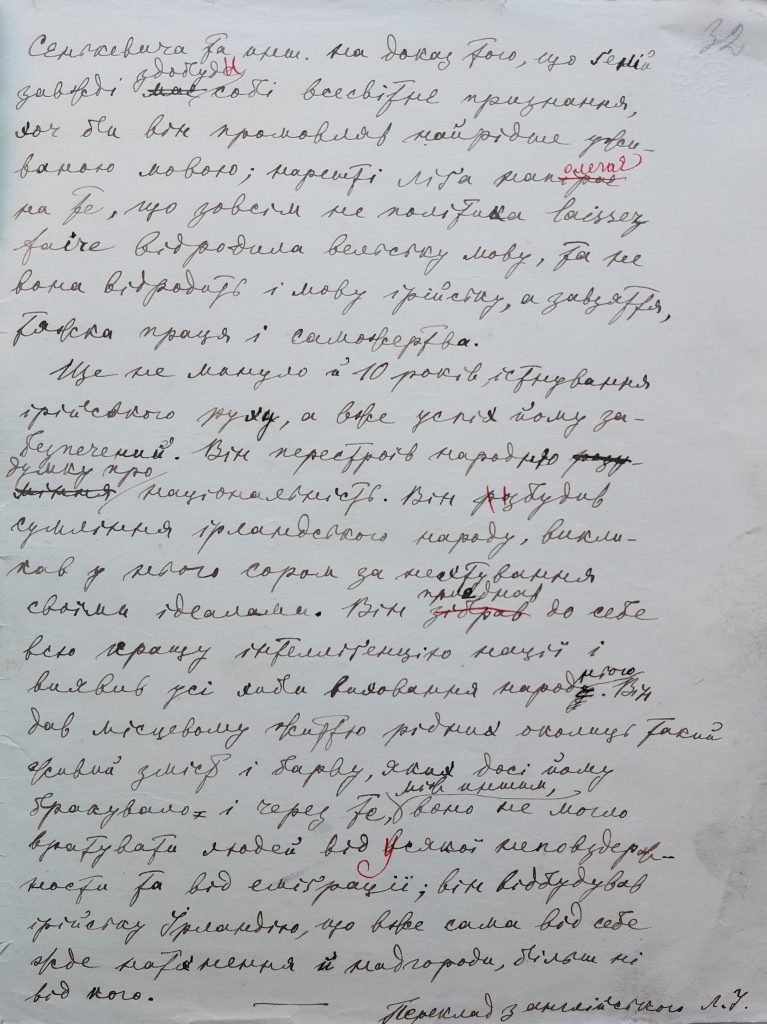 32
Сенькевича та инш. на доказ того, що ґеній
завжді здобуди
має собі всесвітне признання,
хоч би він промовляв найрідше ужи-
ваною мовою; нарешті ліґа напірає
на те, що зовсім не політика laissez
faire відродила вельську мову, та не
вона відродить і мову ірійську, а завзяття,
тяжка праця і саможертва.
Ще не минуло й 10 років істнування
ірійського руху, а вже успіх йому за-
безпечений. Він перестроїв народню розу-
думку про
міння національність. Він збудив
сумління ірландського народу, викли-
кав у нього сором за нехтування
своїми ідеалами. Він приєднав
зібрав до себе
всю кращу інтеллігенцію нації і
виявив усі хиби виховання народнього. Він
дав місцевому життю рідних околиць такий
живий зміст і барву, яких досі йому
бракувало і через те, між иншим, воно не могло
врятувати людей від усякої неповздерж-
ности та від еміґрації; він відбудував
ірійську Ірландію, що вже сама від себе
жде натхнення й надгороди, більш ні
від кого.
Переклад з англійського Л. У.